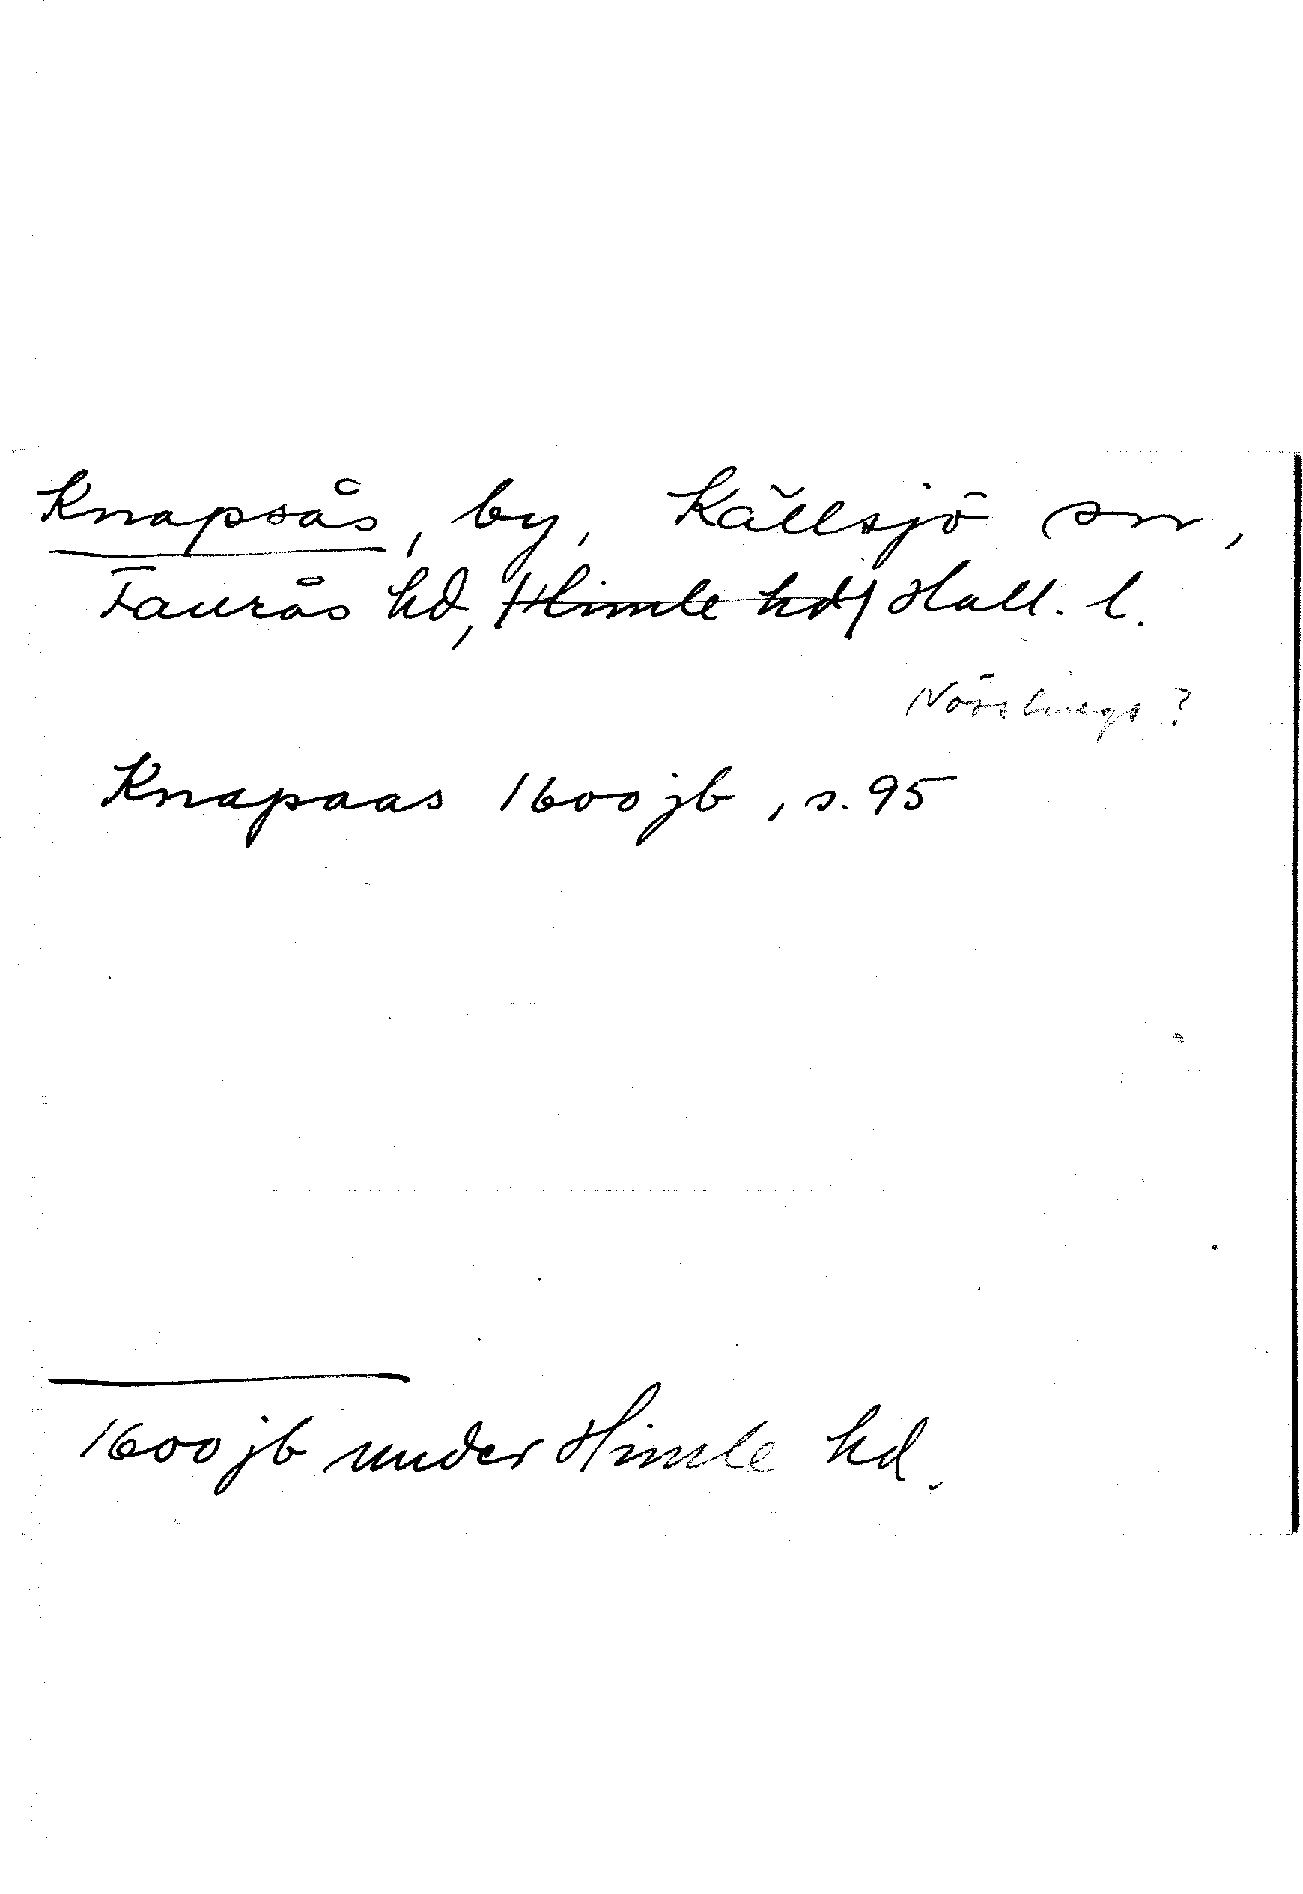 Knapsås, by, Källsjö sn,
Faurås hd, /Himle hd/ Hall. l.
Nösslinge ?
Knapaas 1600 jb, s. 95
1600 jb under Himle hd.